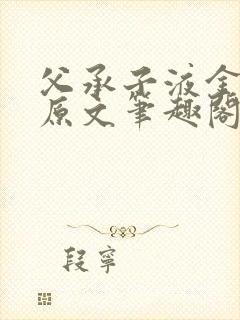 父承子液全
原文笔趣阁
段寧